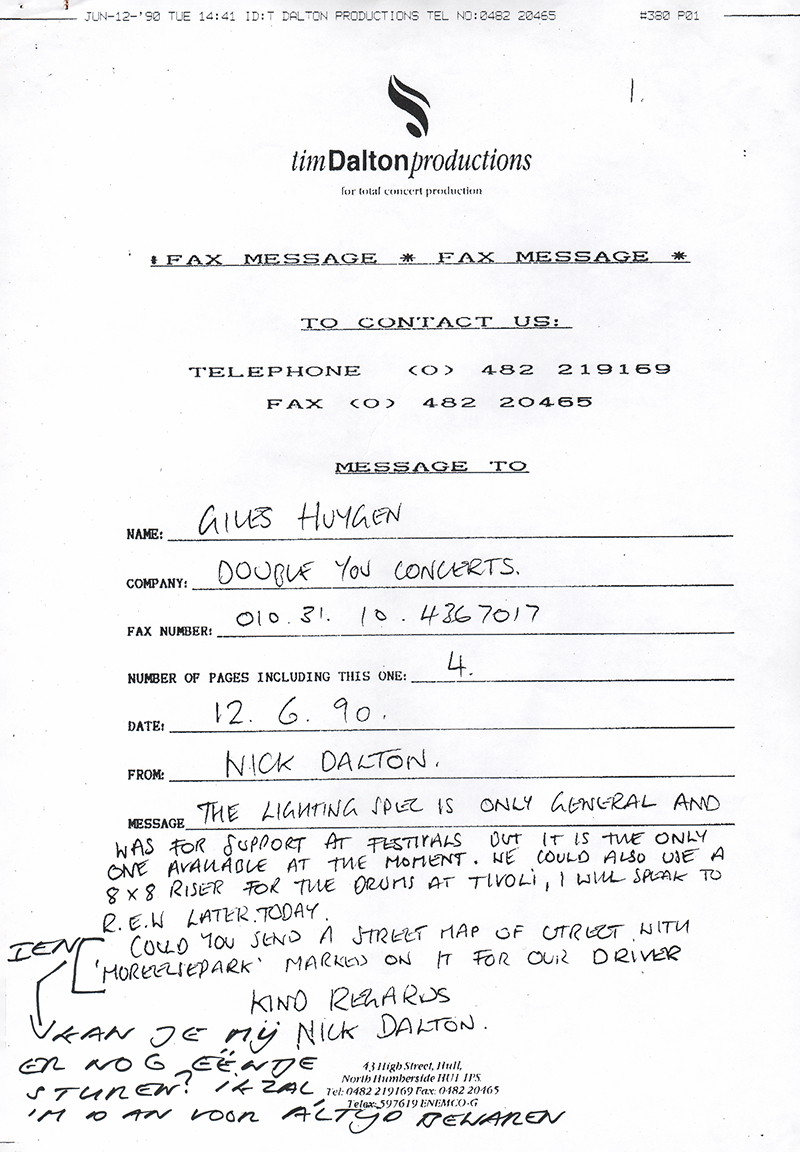 JUN-12-'90 TUE 14:41 ID:T DALTON PRODUCTIONS TEL NO:0482 20465 #380 P01
1.
timDaltonproductions
for total concert production
*FAX MESSAGE * FAX MESSAGE *
TO CONTACT US:
TELEPHONE (0) 482 219169
FAX (0) 482 20465
MESSAGE TO
NAME: GILES HUYGEN
COMPANY: DOUBLE YOU CONCERTS.
FAX NUMBER: 010.31. 10. 4367017
NUMBER OF PAGES INCLUDING THIS ONE: 4.
DATE: 12. 6. 90.
FROM: NICK DALTON.
MESSAGE THE LIGHTING SPEC IS ONLY GENERAL AND
WAS FOR SUPPORT AT FESTIVALS BUT IT IS THE ONLY
ONE AVAILABLE AT THE MOMENT. WE COULD ALSO USE A
8 x 8 RISER FOR THE DRUMS AT TIVOLI, I WILL SPEAK TO
R.E.W LATER.TODAY.
COULD YOU SEND A STREET MAP OF UTRECT WITH
'MOREELSEPARK' MARKED ON IT FOR OUR DRIVER
KIND REGARDS
NICK DALTON.
IEN
KAN JE MIJ
ER NOG EËNTJE
STUREN? IK ZAL
'M DAN VOOR ALTIJD BEWAREN
43 High Street, Hull,
North Humberside HU1 1PS.
Tel: 0482 219169 Fax: 0482 20465
Telex: 597619 ENEMCO-G